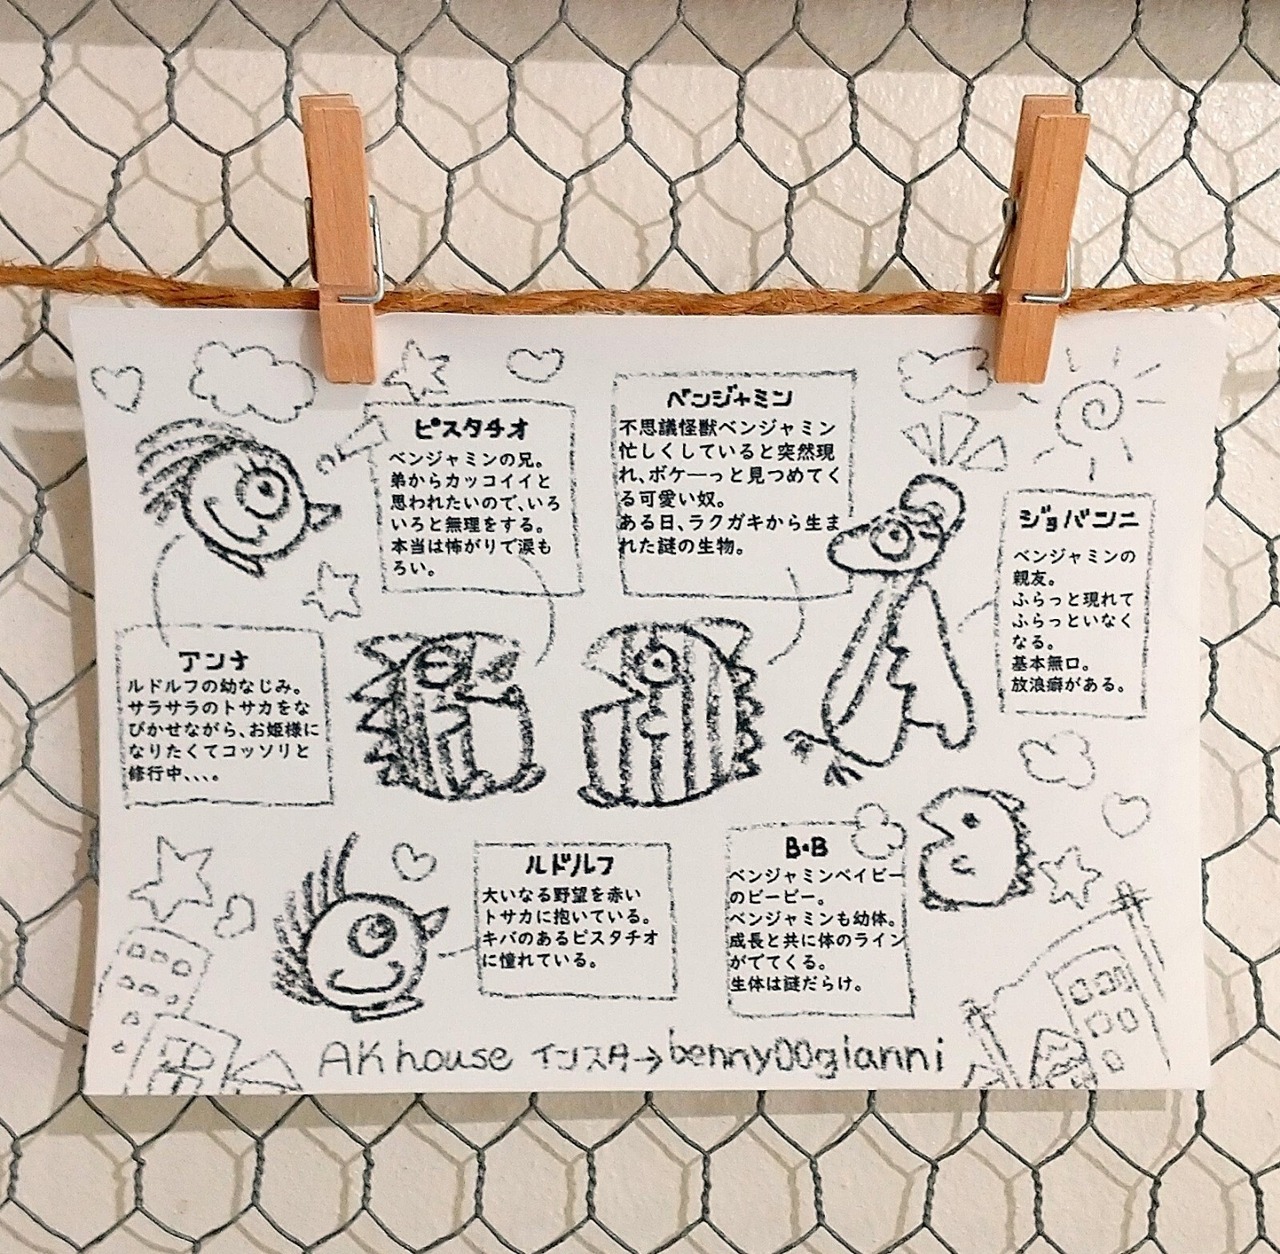 ピスタチオ
ベンジャミンの兄。
弟からカッコイイと
思われたいので、いろ
いろと無理をする。
本当は怖がりで涙も
ろい。
ベンジャミン
不思議怪獣ベンジャミン
忙しくしていると突然現
れ、ボケーっと見つめてく
る可愛い奴。
ある日、ラクガキから生ま
れた謎の生物。
ジョバンニ
ベンジャミンの
親友。
ふらっと現れて
ふらっといなく
なる。
基本無口。
放浪癖がある。
アンナ
ルドルフの幼なじみ。
サラサラのトサカをな
びかせながら、お姫様に
なりたくてコッソリと
修行中、、、。
ルドルフ
大いなる野望を赤い
トサカに抱いている。
キバのあるピスタチオ
に憧れている。
B・B
ベンジャミンベイビー
のビービー。
ベンジャミンも幼体。
成長と共に体のライン
がでてくる。
生体は謎だらけ。
AK house インスタ→benny00gianni